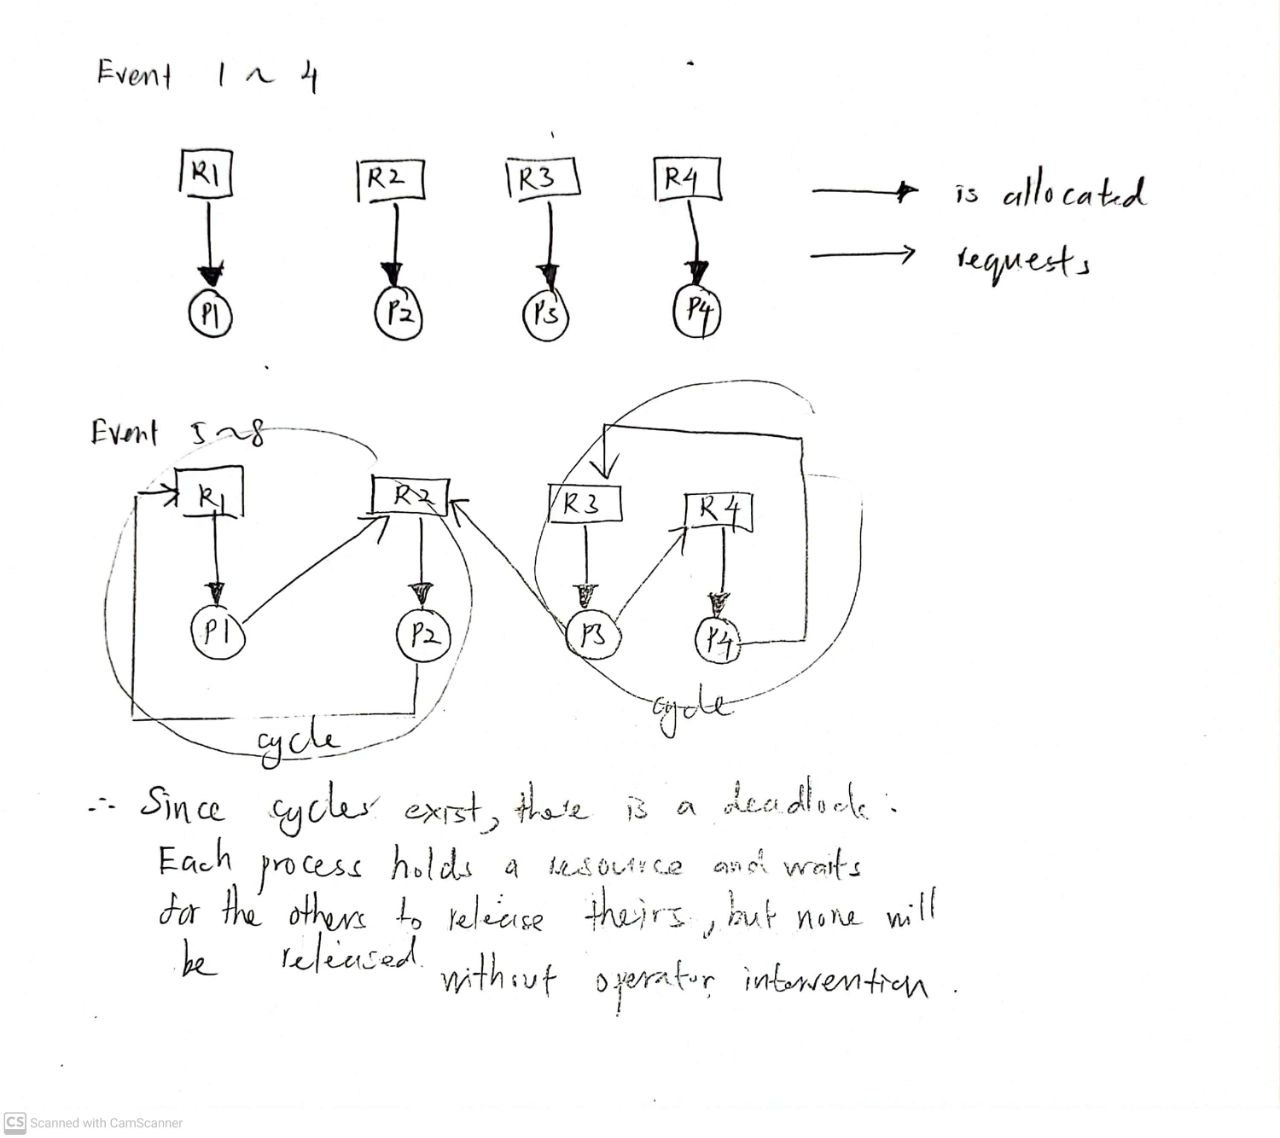 Event 1 ~ 4
R1 R2 R3 R4
is allocated
requests
P1 P2 P3 P4
Event 5 ~ 8
R1 R2 R3 R4
P1 P2 P3 P4
cycle
cycle
∴ Since cycles exist, there is a deadlock.
Each process holds a resource and waits
for the others to release theirs, but none will
be released without operator intervention.
CS Scanned with CamScanner